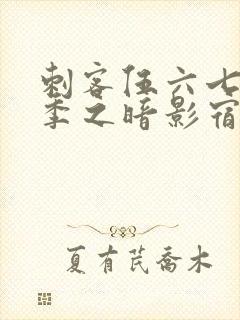 刺客伍六七
季之暗影宿
夏有芪乔木